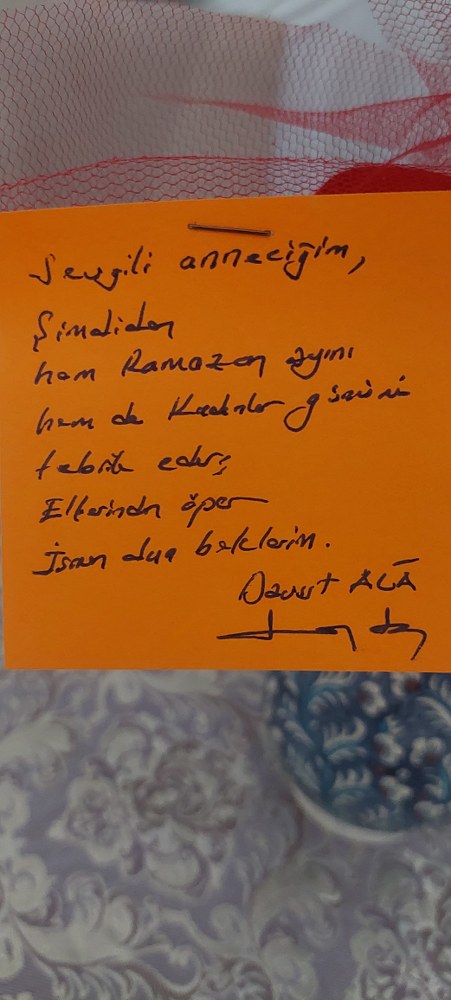 Sevgili anneciğim,
Şimdiden
hem Ramazan ayını
hem de Kadınlar gününü
tebrik eder,
Ellerinden öper
dua beklerim.
Davut ALÂ